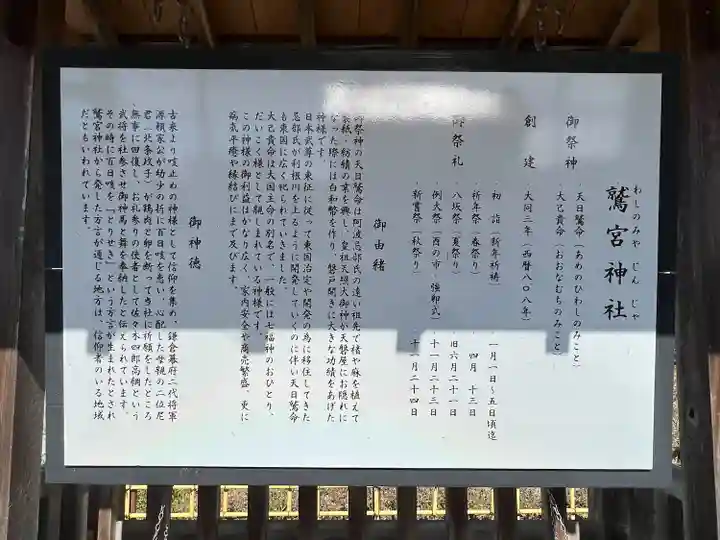 わしのみや じん じゃ
鷲宮神社
御祭神
・天日鷲命（あめのひわしのみこと）
・大己貴命（おおなむちのみこと）
創建
・大同三年（西暦八〇八年）
御祭礼
・初詣（新年祈祷） 一月一日～五日頃迄
・祈年祭（春祭り） 四月 十三日
・八坂祭（夏祭り） 旧六月二十一日
・例大祭（酉の市・強卵式） 十一月二十三日
・新嘗祭（秋祭り） 十一月二十四日
御由緒
御祭神の天日鷲命は阿波忌部氏の遠い祖先で楮や麻を植えて
製紙・紡績の業を興し、皇祖天照大御神が天磐屋にお隠れに
なった際には白和幣を作り、磐戸開きに大きな功績をあげた
神様です。
日本武尊の東征に従って東国治定や開発の為に移住してきた
忌部氏が利根川を上るように開発していくのに伴い天日鷲命
も東国に広く祀られていきました。
大己貴命は大国主命の別名で、一般には七福神のおひとり、
だいこく様として親しまれている神様です。
この神様の御利益はかなり広く、家内安全や商売繁盛、更に
病気平癒や縁結びにまで及びます。
御神徳
古来より咳止めの神様として信仰を集め、鎌倉幕府二代将軍
源頼家公が幼少の折に百日咳を患い、心配した母親の二位尼
君（北条政子）が鶏肉と卵を断って当社に祈願をしたところ
無事に回復し、お礼参りの使者として佐々木四郎高綱という
武将を社参させ御神馬と舞を奉納したと伝えられています。
その時に百日咳を「とりせき」という方言が生まれたとされ
鷲宮神社から発した方言が通じる地方は、信仰者のいる地域
だともいわれています。